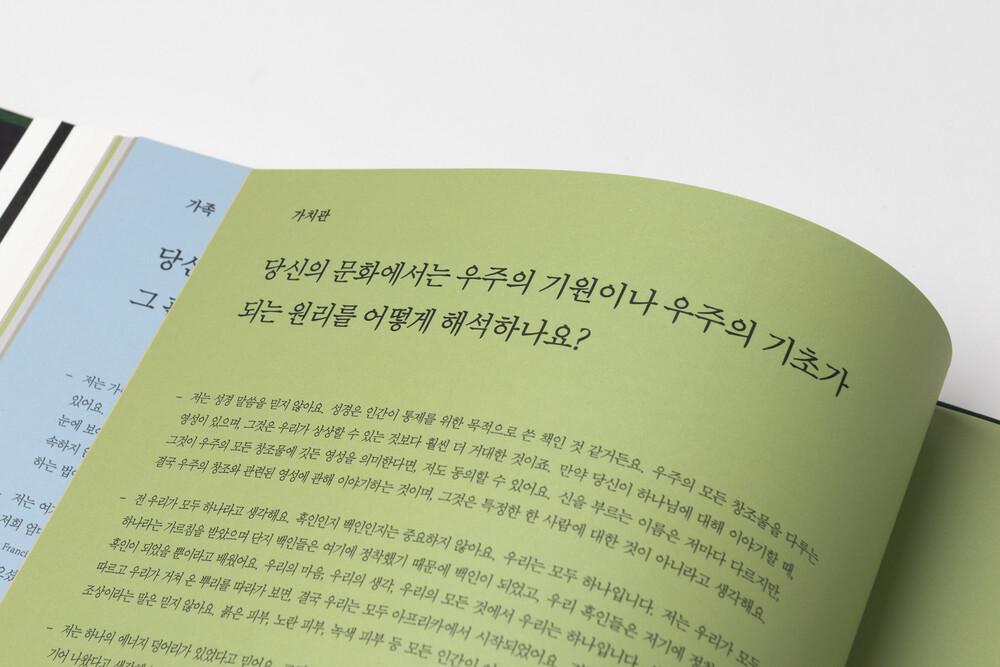 가족
당신
그
- 저는 가
있어요.
눈에 보
속하지 않
하는 법
- 저는 여
저희 엄
Franci
가치관
당신의 문화에서는 우주의 기원이나 우주의 기초가
되는 원리를 어떻게 해석하나요?
- 저는 성경 말씀을 믿지 않아요. 성경은 인간이 통제를 위한 목적으로 쓴 책인 것 같거든요. 우주의 모든 창조물을 다루는
영성이 있으며, 그것은 우리가 상상할 수 있는 것보다 훨씬 더 거대한 것이죠. 만약 당신이 하나님에 대해 이야기할 때,
그것이 우주의 모든 창조물에 깃든 영성을 의미한다면, 저도 동의할 수 있어요. 신을 부르는 이름은 저마다 다르지만,
결국 우주의 창조와 관련된 영성에 관해 이야기하는 것이며, 그것은 특정한 한 사람에 대한 것이 아니라고 생각해요.
- 전 우리가 모두 하나라고 생각해요. 흑인인지 백인인지는 중요하지 않아요. 우리는 모두 하나입니다. 저는 우리가 모두
하나라는 가르침을 받았으며 단지 백인들은 여기에 정착했기 때문에 백인이 되었고, 우리 흑인들은 저기에 정착
흑인이 되었을 뿐이라고 배웠어요. 우리의 마음, 우리의 생각, 우리의 모든 것에서 우리는 하나입니다.
따르고 우리가 거쳐 온 뿌리를 따라가 보면, 결국 우리는 모두 아프리카에서 시작되었어요.
조상이라는 말은 믿지 않아요. 붉은 피부, 노란 피부, 녹색 피부 등 모든 인간이
- 저는 하나의 에너지 덩어리가 있었다고 믿어요.
기어 나왔다고 생각해